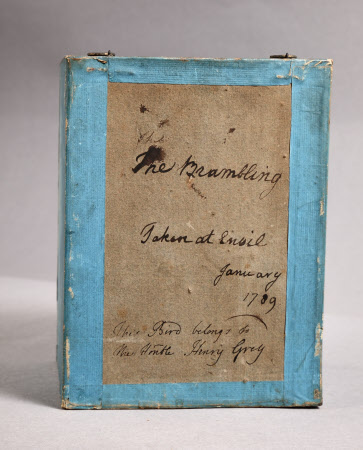 The Brambling
Taken at Envil
January
1789
This Bird belongs to
the Honble Henry Grey